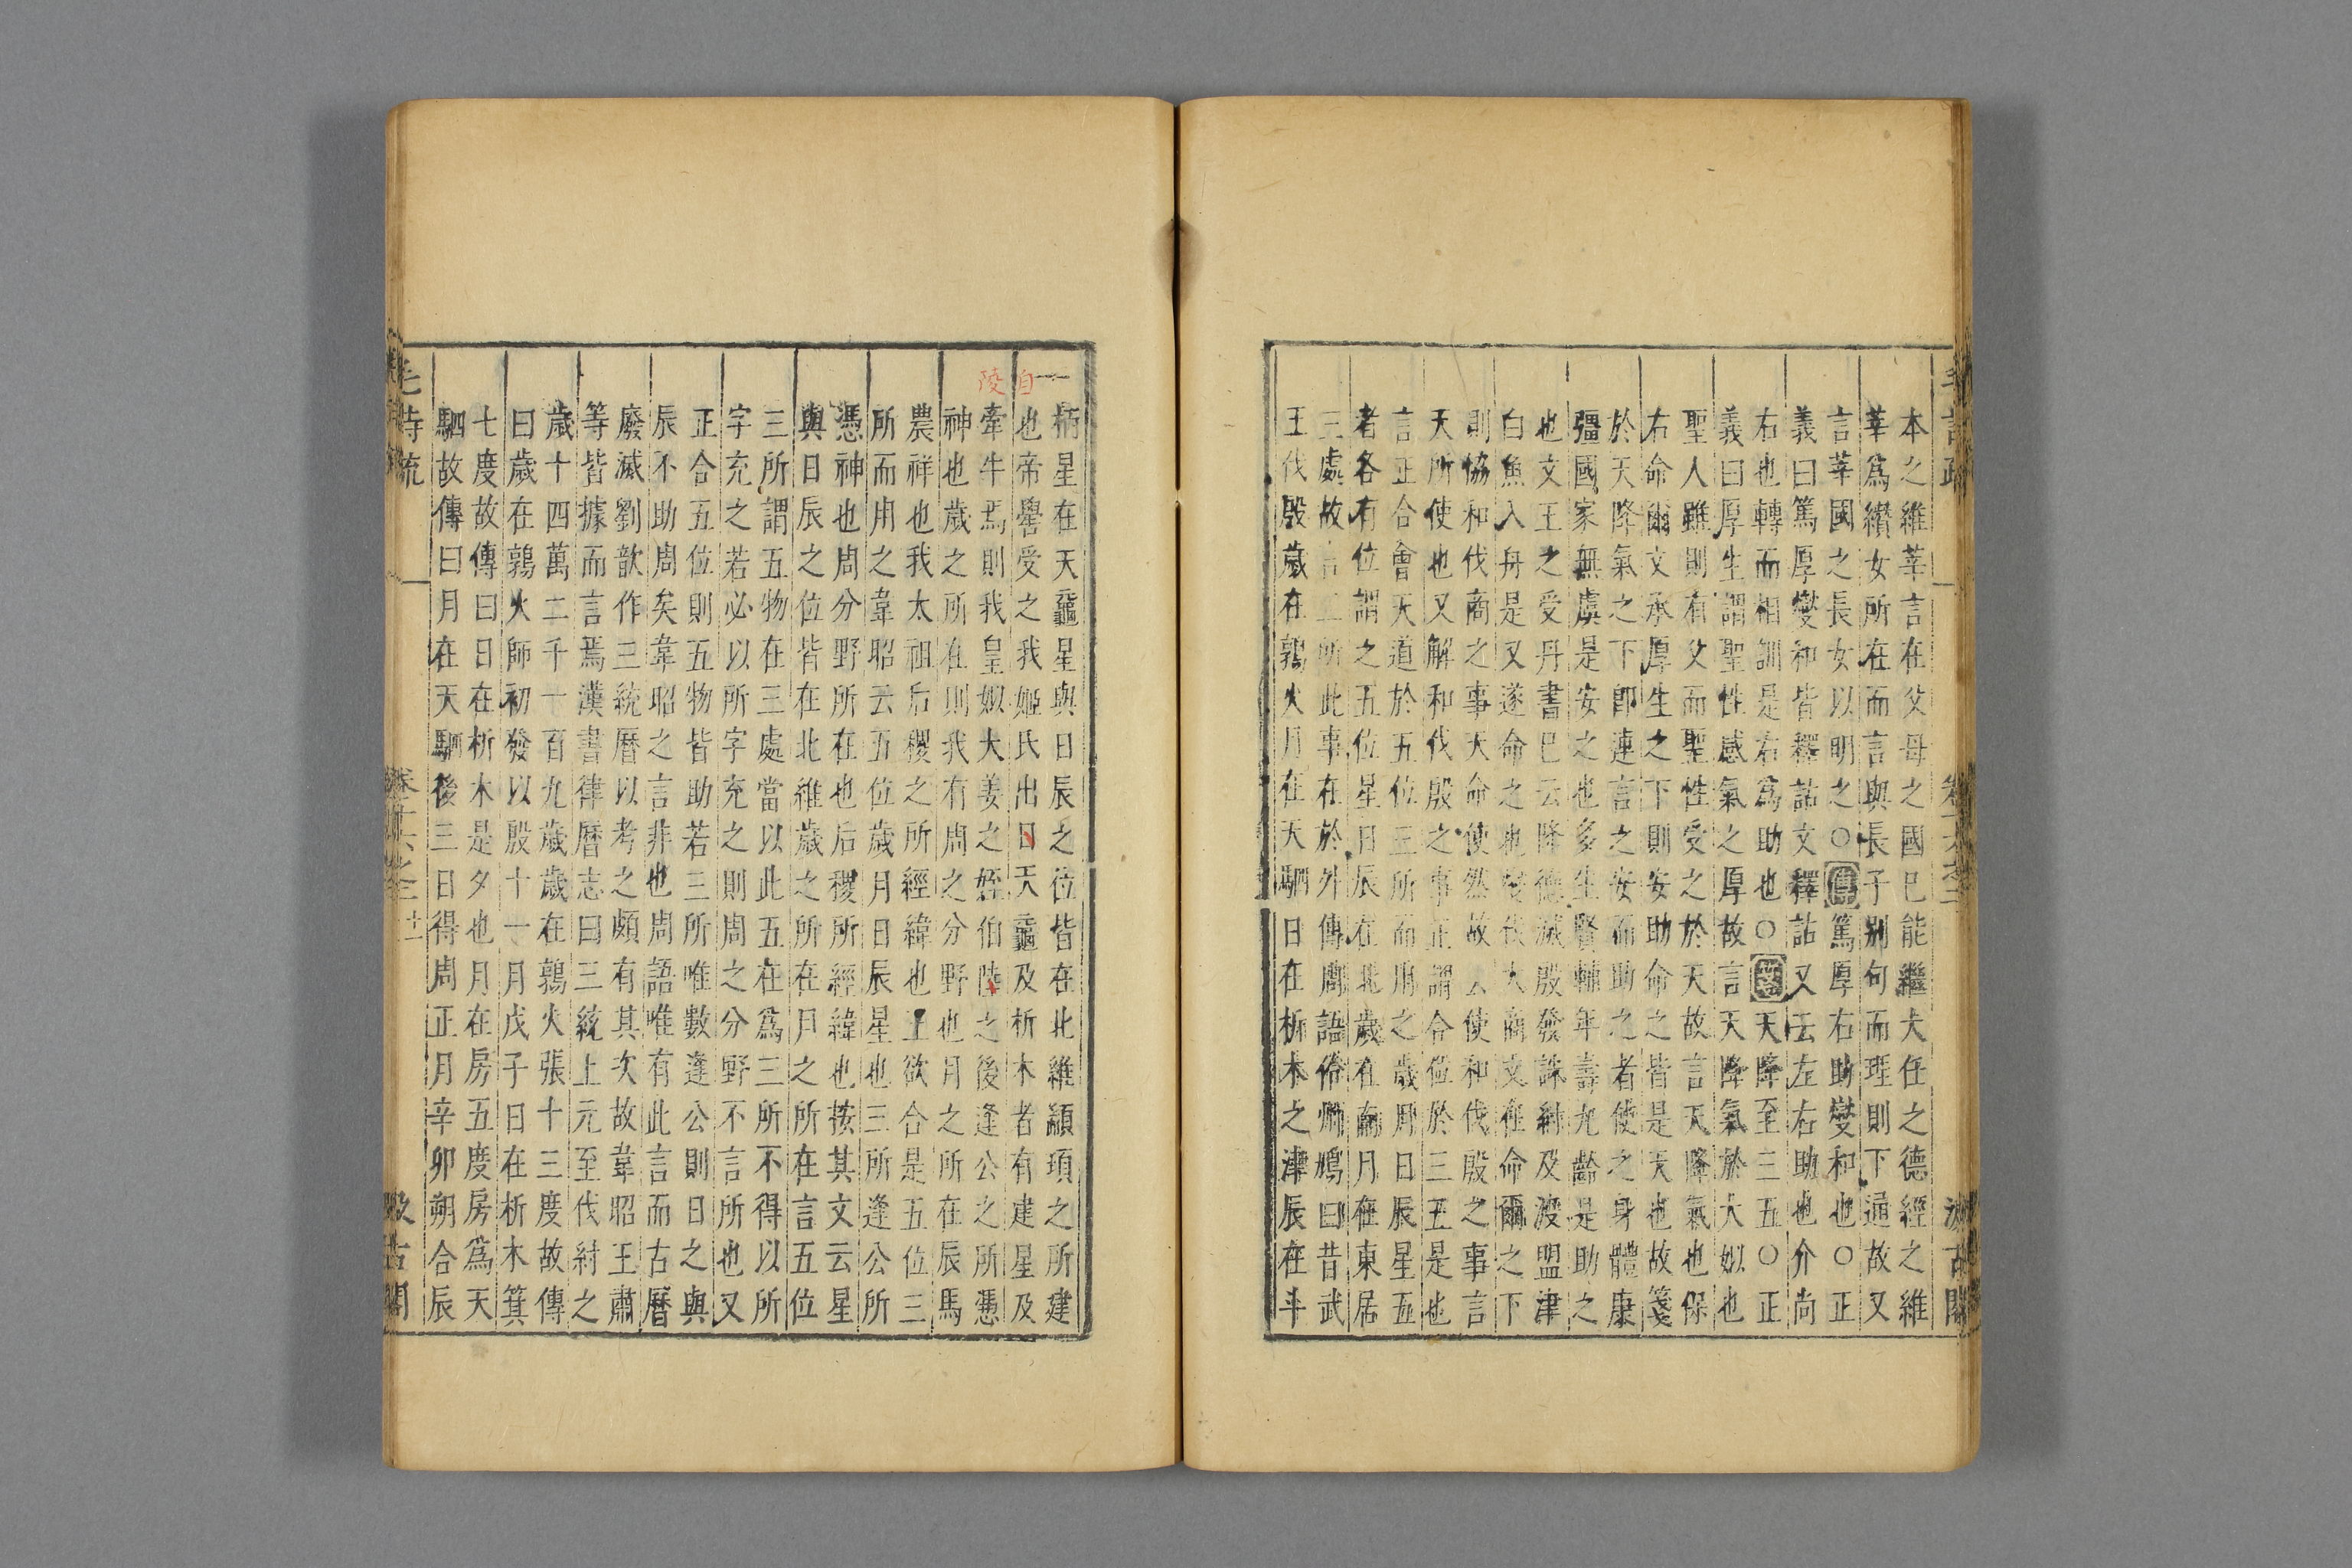 本之維莘言在父母之國已能繼大任之德經之維
莘爲纘女所在而言與長子別句而理則下通故又
言莘國之長女以明之○傳篤厚右助燮和也○正
義曰篤厚燮和皆釋詁文釋詁又云左右助也介尚
右也轉而相訓是右爲助也○箋天降至三五○正
義曰厚生謂聖性感氣之厚故言天降氣於大姒也
聖人雖則有父而聖性受之於天故言天降氣也保
右命爾文承厚生之下則安助命之皆是天也故箋
於天降氣之下卽連言之安而助之者使之身體康
彊國家無虞是安之也多生賢輔年壽九齡是助之
也文王之受丹書巳云降德滅殷發誅紂及渡盟津
白魚入舟是又遂命之也燮伐大商文在命爾之下
則協和伐商之事天命使然故云使和伐殷之事言
天所使也又解和伐殷之事正謂合位於三五是也
言正合會天道於五位三所而用之歲月日辰星五
者各有位謂之五位星日辰在北歲在南月在東居
三處故言三所此事在於外傳周語伶州鳩曰昔武
王伐殷歲在鶉火月在天駟日在析木之津辰在斗
柄星在天黿星與日辰之位皆在北維顓頊之所建
也帝嚳受之我姬氏出日天黿及析木者有建星及
牽牛焉則我皇妣大姜之姪伯陸之後逢公之所憑
神也歲之所在則我有周之分野也月之所在辰馬
農祥也我太祖后稷之所經緯也王欲合是五位三
所而用之韋昭云五位歲月日辰星也三所逢公所
憑神也周分野所在也后稷所經緯也按其文云星
與日辰之位皆在北維歲之所在月之所在言五位
三所謂五物在三處當以此五在爲三所不得以所
字充之若必以所字充之則周之分野不言所也又
正合五位則五物皆助若三所唯數逢公則日之與
辰不助周矣韋昭之言非也周語唯有此言而古曆
廢滅劉歆作三統曆以考之頗有其次故韋昭王肅
等皆據而言焉漢書律曆志曰三統上元至伐紂之
歲十四萬二千一百九歲歲在鶉火張十三度故傳
曰歲在鶉火師初發以殷十一月戊子日在析木箕
七度故傳曰日在析木是夕也月在房五度房爲天
駟故傳曰月在天駟後三日得周正月辛卯朔合辰
自
陵
毛詩疏
汲古閣